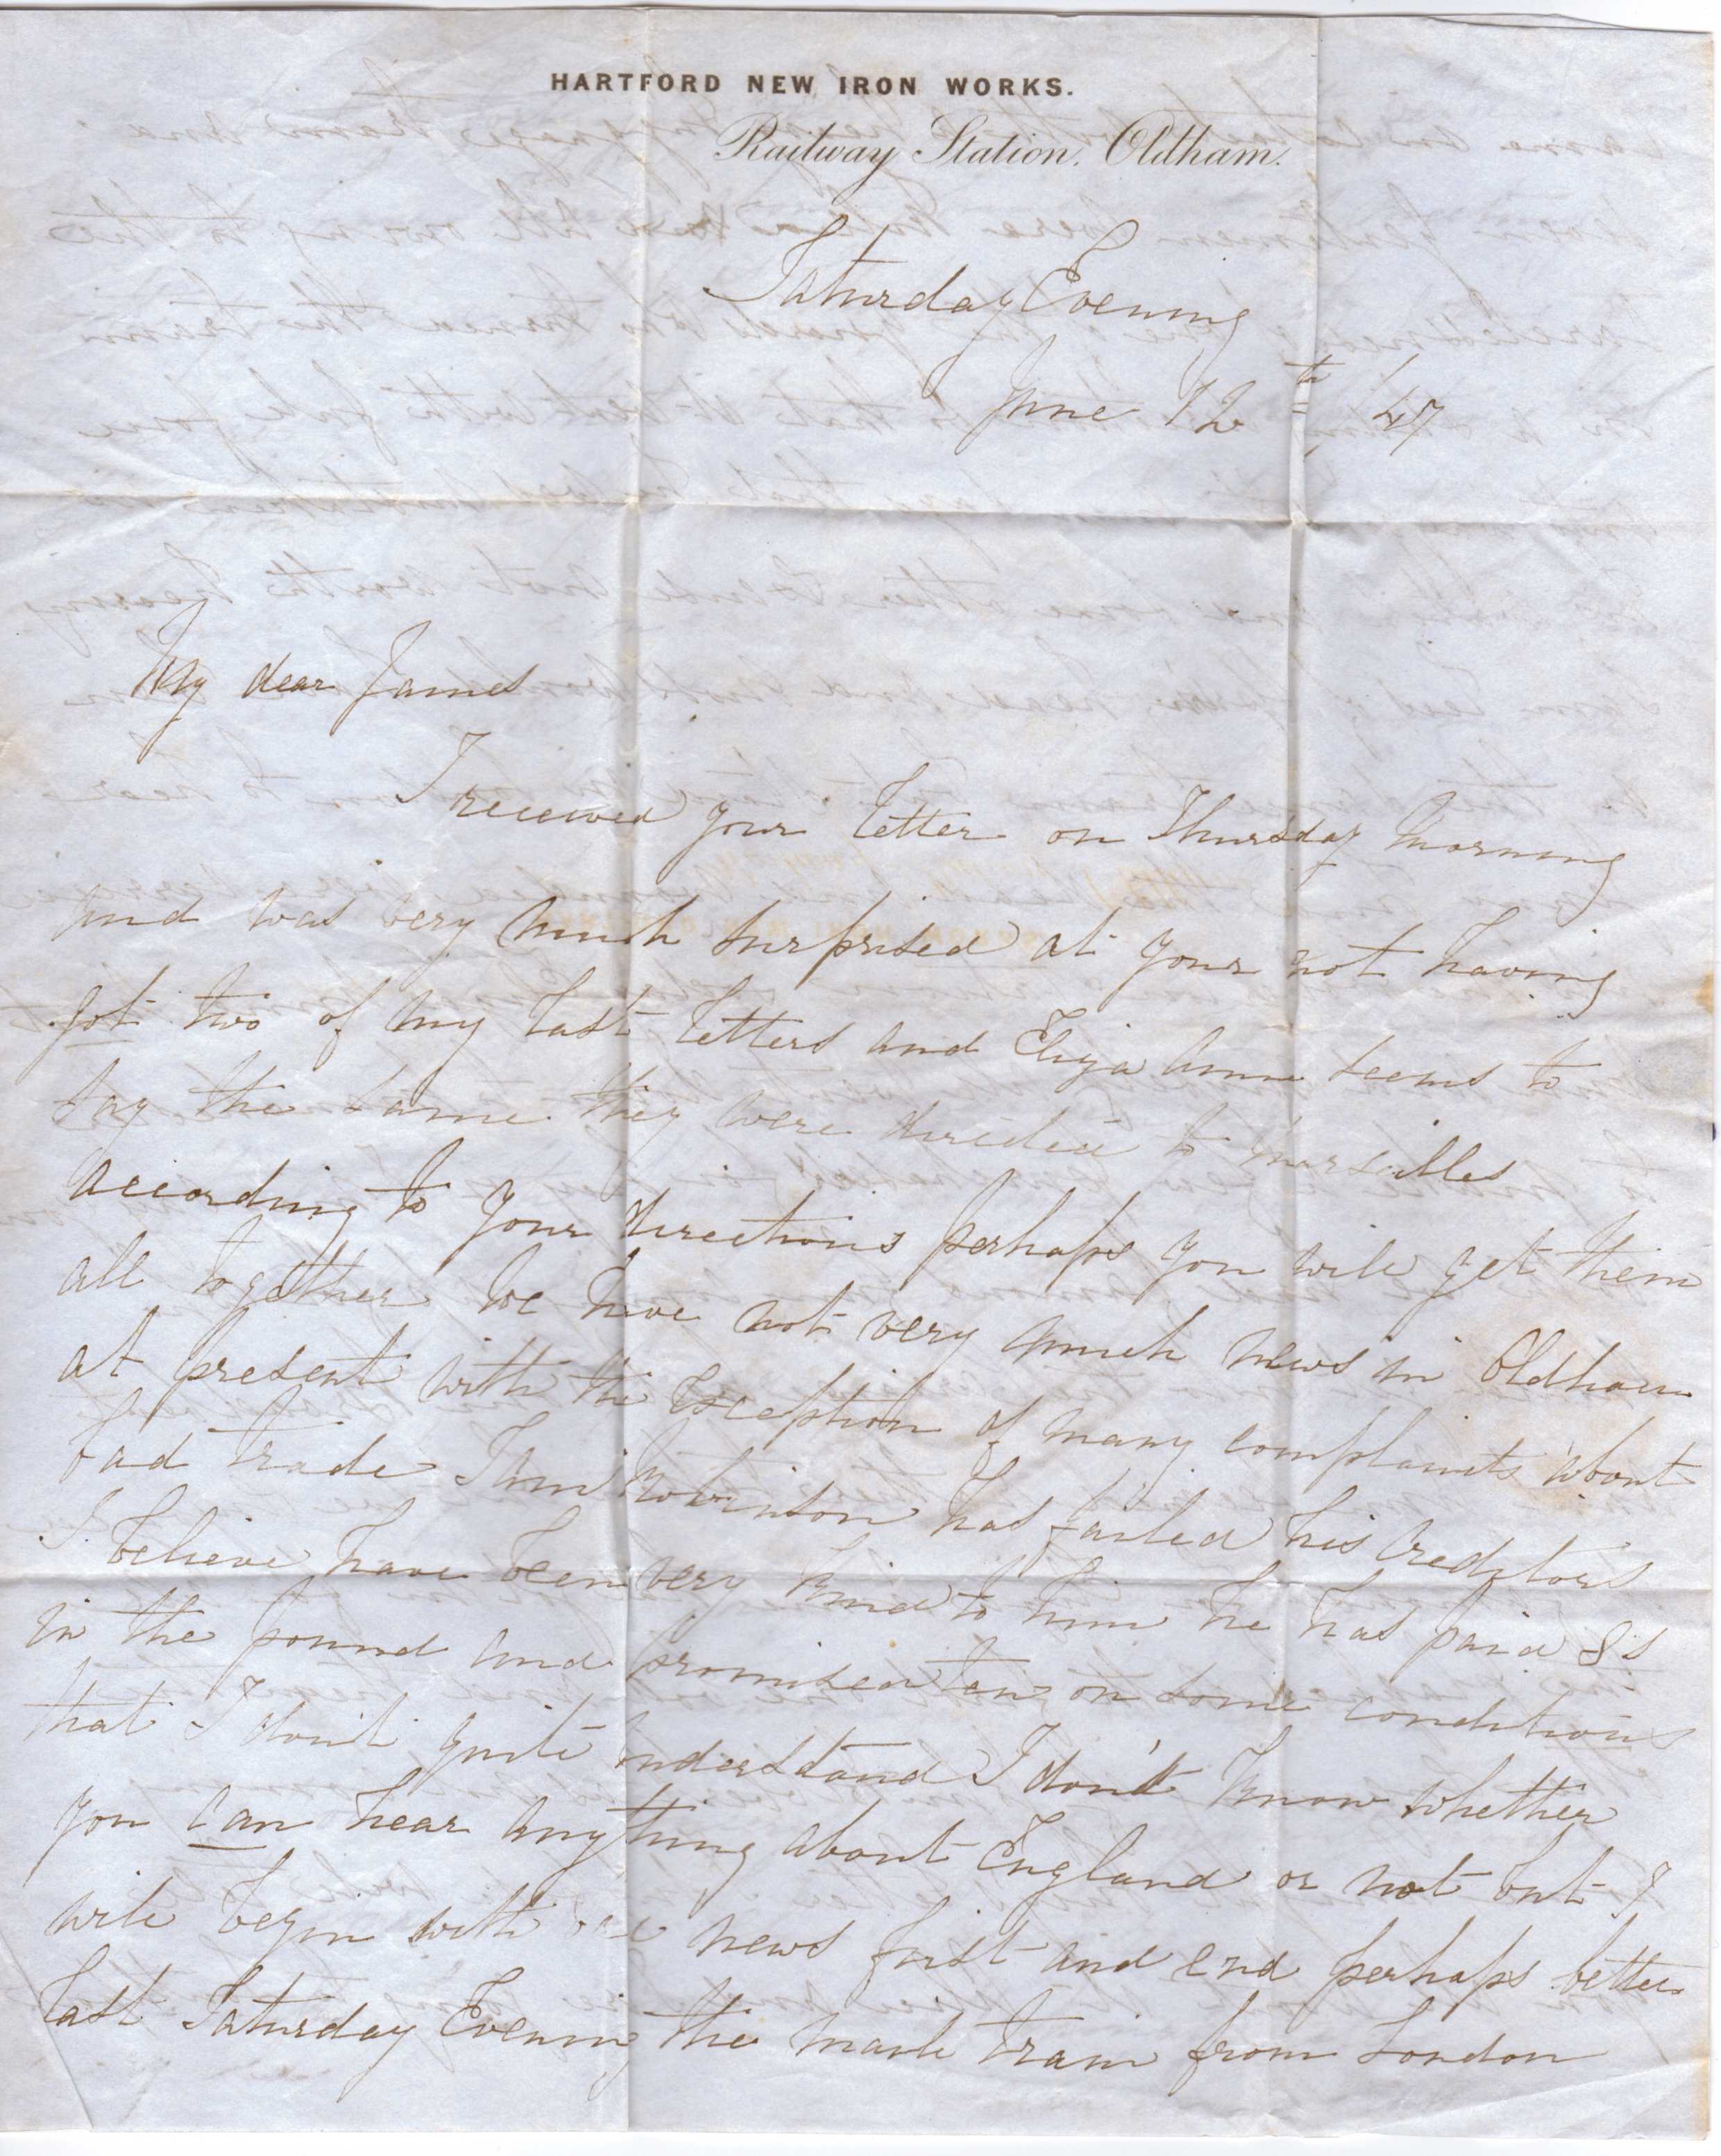 HARTFORD NEW IRON WORKS.
Railway Station. Oldham.
Saturday Evening
June 12th /47
My dear James
I received your letter on Thursday Morning
and was very much surprised at your not having
got two of my last letters and Eliza Ann seems to
say the same they were directed to Marseilles
According to your directions perhaps you will get them
all together We have not very much news in Oldham
at present with the exception of many complaints about
bad trade Sam Robinson has failed his Creditors
I believe have been very kind to him he has paid 8s
in the pound and promised ten on some conditions
that I don't quite understand I don't know whether
you can hear anything about England or not but I
will begin with news first and end perhaps better
last Saturday Evening the mail train from London